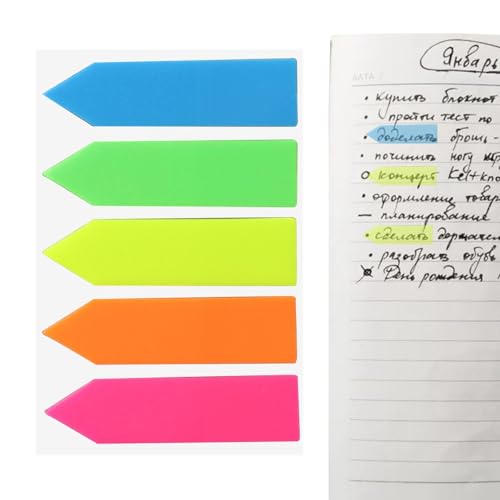 Январь
ДАТА /
• купить блокнот
• пройти тест по
• доделать брошь -
• починить ногу
○ концерт Ке[+кпо
• оформление товар
— планирование
• сделать держател
• разобрать обувь
• День рождения